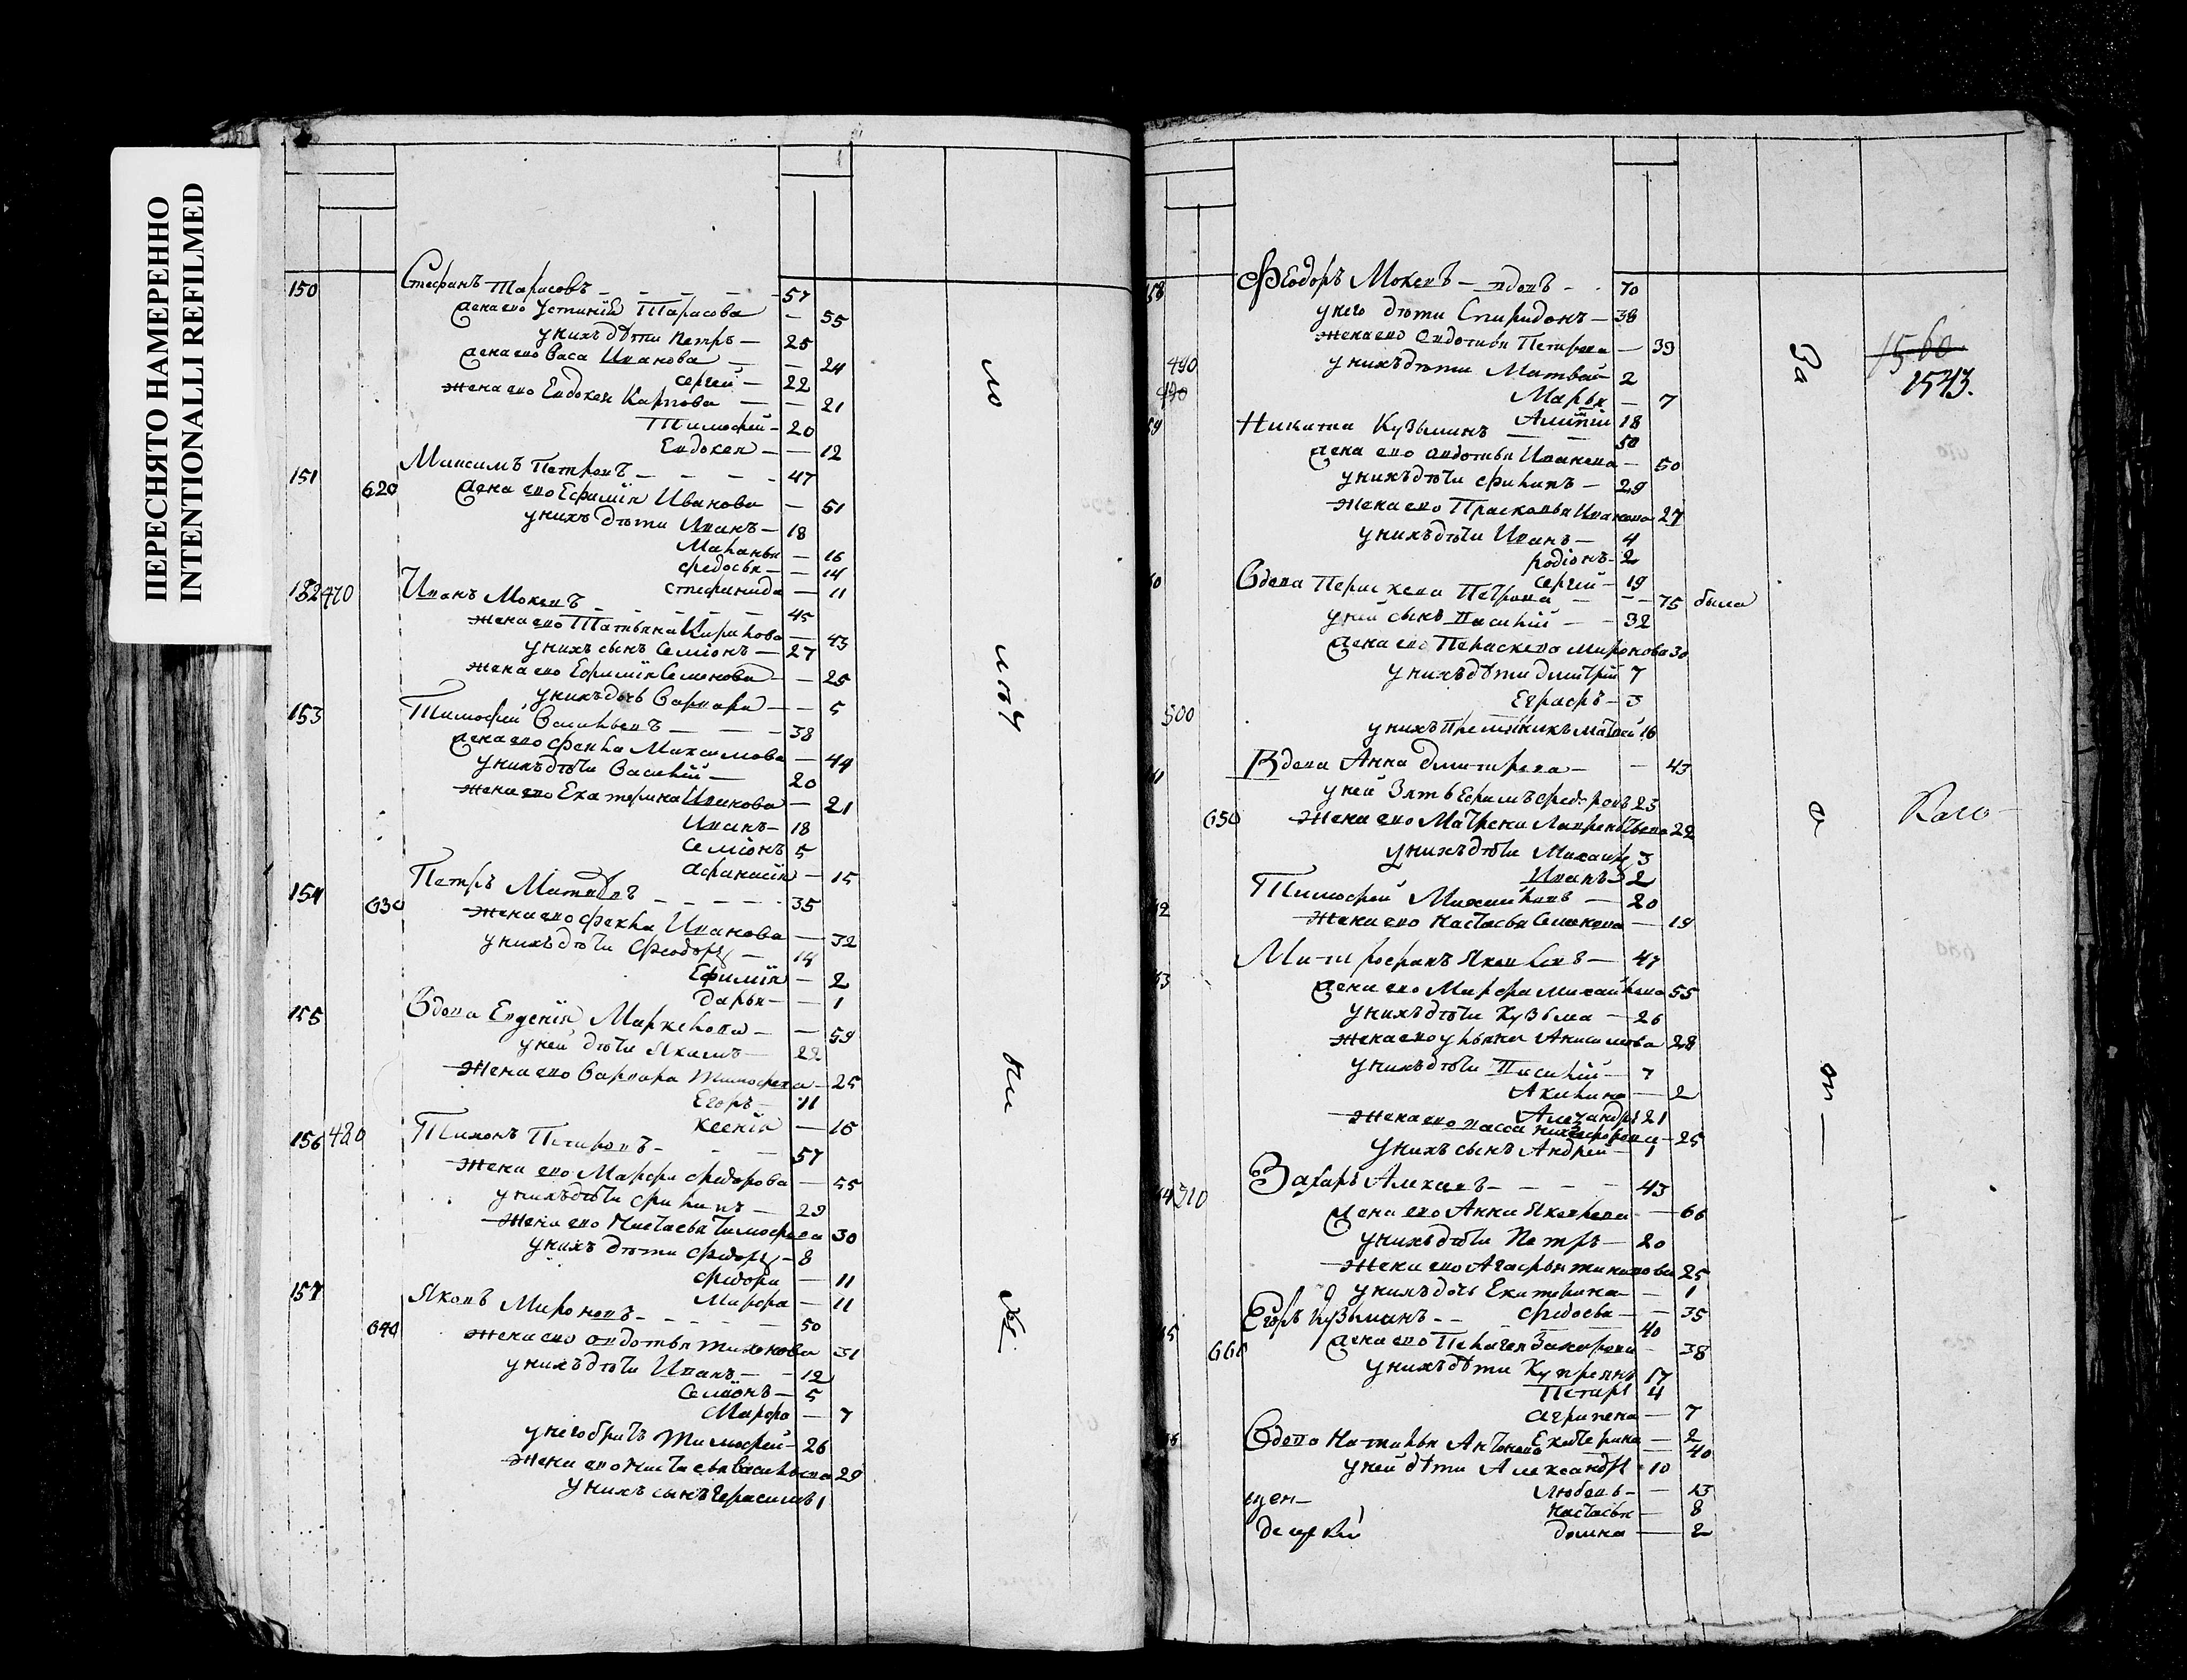 ПЕРЕСНЯТО НАМЕРЕННО
INTENTIONALLI REFILMED
150 Стефанъ Тарасовъ 57
жена ево Устинія Тарасова 55
у нихъ дѣти Петръ 25
жена ево Васа Иванова 24
Сергей 22
жена ево Евдокея Карпова 21
Тимофей 20
Евдокея 12
151 Максимъ Петровъ 47
620 жена ево Ефимія Иванова 51
у нихъ дѣти Иванъ 18
Маланья 16
Федосья 14
Стефанида 11
152 470 Иванъ Мокевъ 45
жена ево Татьяна Кирилова 43
у нихъ сынъ Семіонъ 27
жена ево Ефимія Семенова 25
у нихъ дочь Варвара 5
153 Тимофей Васильевъ 38
жена ево Фекла Максимова 44
у нихъ дѣти Василій 20
жена ево Екатерина Иванова 21
Иванъ 18
Семіонъ 5
Афанасія 15
154 Петръ Матвѣевъ 35
630 жена ево Фекла Иванова 32
у нихъ дѣти Феодоръ 14
Ефимія 2
Дарья 1
155 Вдова Евгенія Маркелова 59
у ней дѣти Якимъ 22
жена ево Варвара Тимофева 25
Егоръ 11
Ксенія 16
156 480 Тихонъ Петровъ 57
жена ево Марфа Федорова 55
у нихъ дѣти Филипъ 29
жена ево Настасья Тимофеева 30
у нихъ дѣти Федоръ 8
Федора 11
Марфа 11
157 Яковъ Мироновъ 50
640 жена ево Авдотья Тихонова 31
у нихъ дѣти Иванъ 12
Семіонъ 5
Марфа 7
у него братъ Тимофей 26
жена ево Настасья Васильева 29
у нихъ сынъ Герасимъ 1
58 Феодоръ Мокевъ вдовъ 70
у него дѣти Спиридонъ 38
жена ево Авдотья Петрова 39
490 у нихъ дѣти Матвей 2
490 Марья 7
Алипій 18
59 Никита Кузьминъ 50
жена ево Авдотья Иванова 50
у нихъ дѣти Филипъ 29
жена ево Прасковья Иванова 27
у нихъ дѣти Иванъ 4
Родіонъ 2
Сергей 19
60 Вдова Параскева Петрова 75 была
у ней сынъ Василій 32
жена ево Параскева Миронова 30
у нихъ дѣти Дмитрій 7
Евграфъ 3
500 у нихъ Матвей 16
61 Вдова Анна Дмитрева 43
у ней зять Ефимъ Федоровъ 23
650 жена ево Матрена Лаврентьева 22
у нихъ дѣти Михаилъ 3
Иванъ 2
62 Тимофей Михайловъ 20
жена ево Настасья Семенова 19
63 Митрофанъ Яковлевъ 47
жена ево Марфа Михайлова 55
у нихъ дѣти Кузьма 26
жена ево Ульяна Анисимова 28
у нихъ дѣти Василій 7
Акилина 2
Александръ 21
жена ево Васса Никифорова 25
у нихъ сынъ Андрей 1
64 510 Захаръ Алексеевъ 43
жена ево Анна Яковлева 66
у нихъ дѣти Петръ 20
жена ево Агафья 25
у нихъ дочь Екатерина 1
Федосья 35
65 Егоръ Кузьминъ 40
660 жена ево Пелагея Захарова 38
у нихъ дѣти Купреянъ 17
Петръ 4
Агрипена 7
Екатерина 2
66 Вдова Наталья Антонова 40
у ней дѣти Александръ 10
Любовь 13
Настасья 8
Домна 2
За
1560
1543.